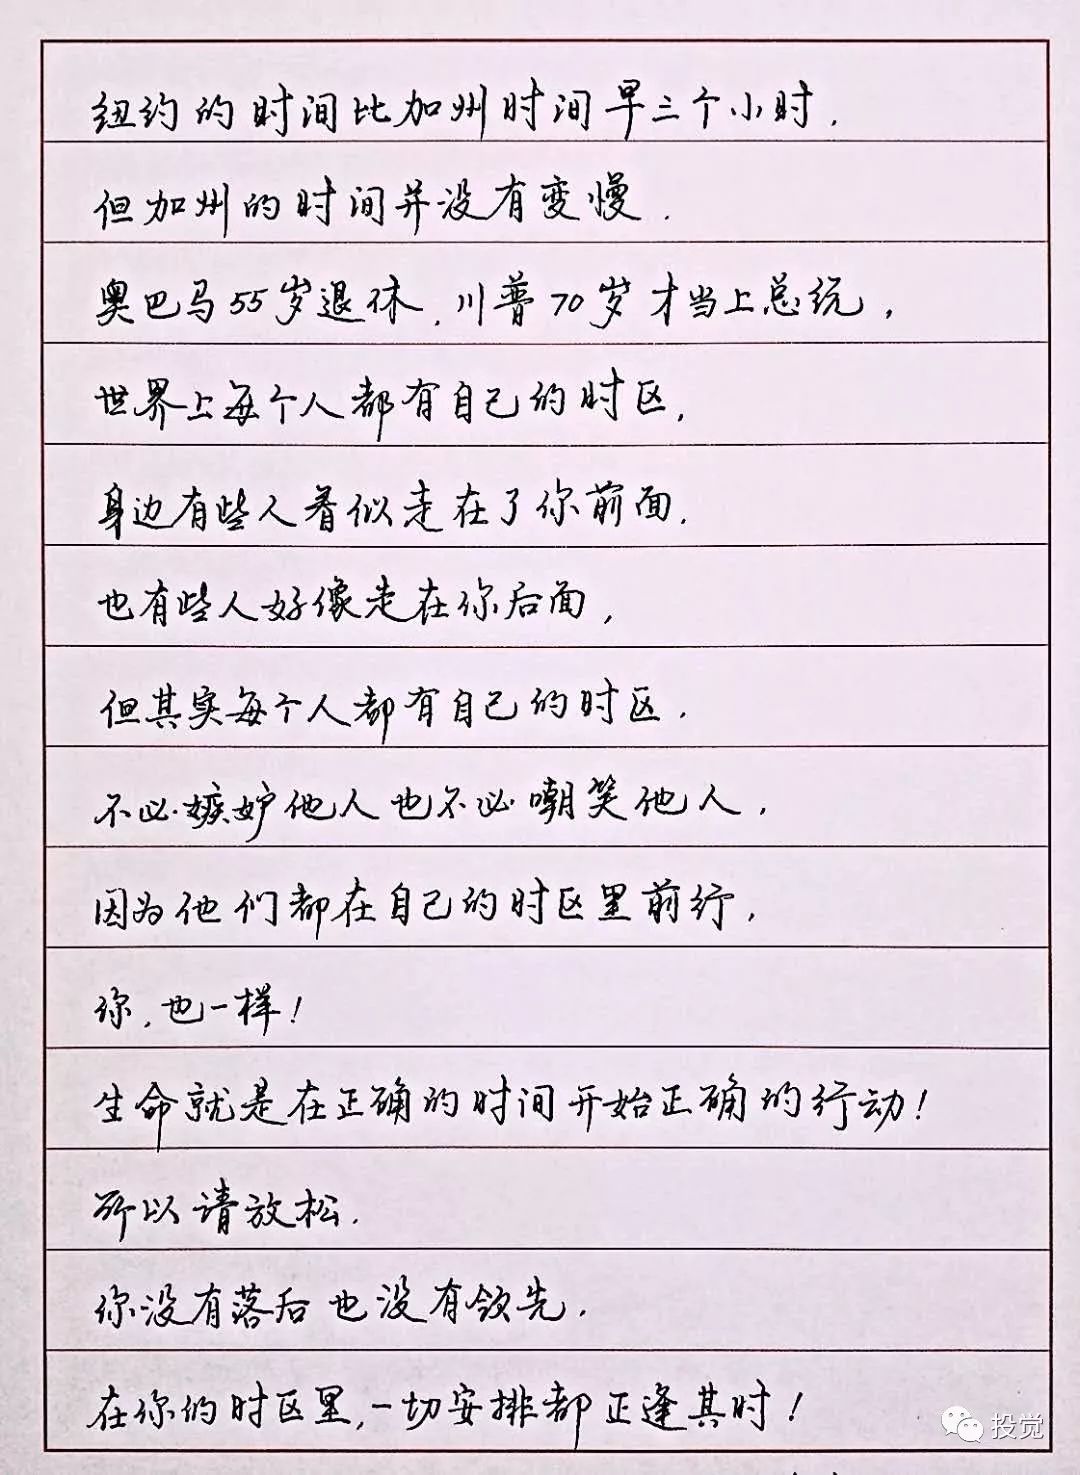 纽约的时间比加州时间早三个小时.
但加州的时间并没有变慢.
奥巴马55岁退休,川普70岁才当上总统,
世界上每个人都有自己的时区,
身边有些人看似走在了你前面.
也有些人好像走在你后面,
但其实每个人都有自己的时区.
不必嫉妒他人也不必嘲笑他人,
因为他们都在自己的时区里前行,
你,也一样!
生命就是在正确的时间开始正确的行动!
所以请放松.
你没有落后也没有领先.
在你的时区里,一切安排都正逢其时!
投觉